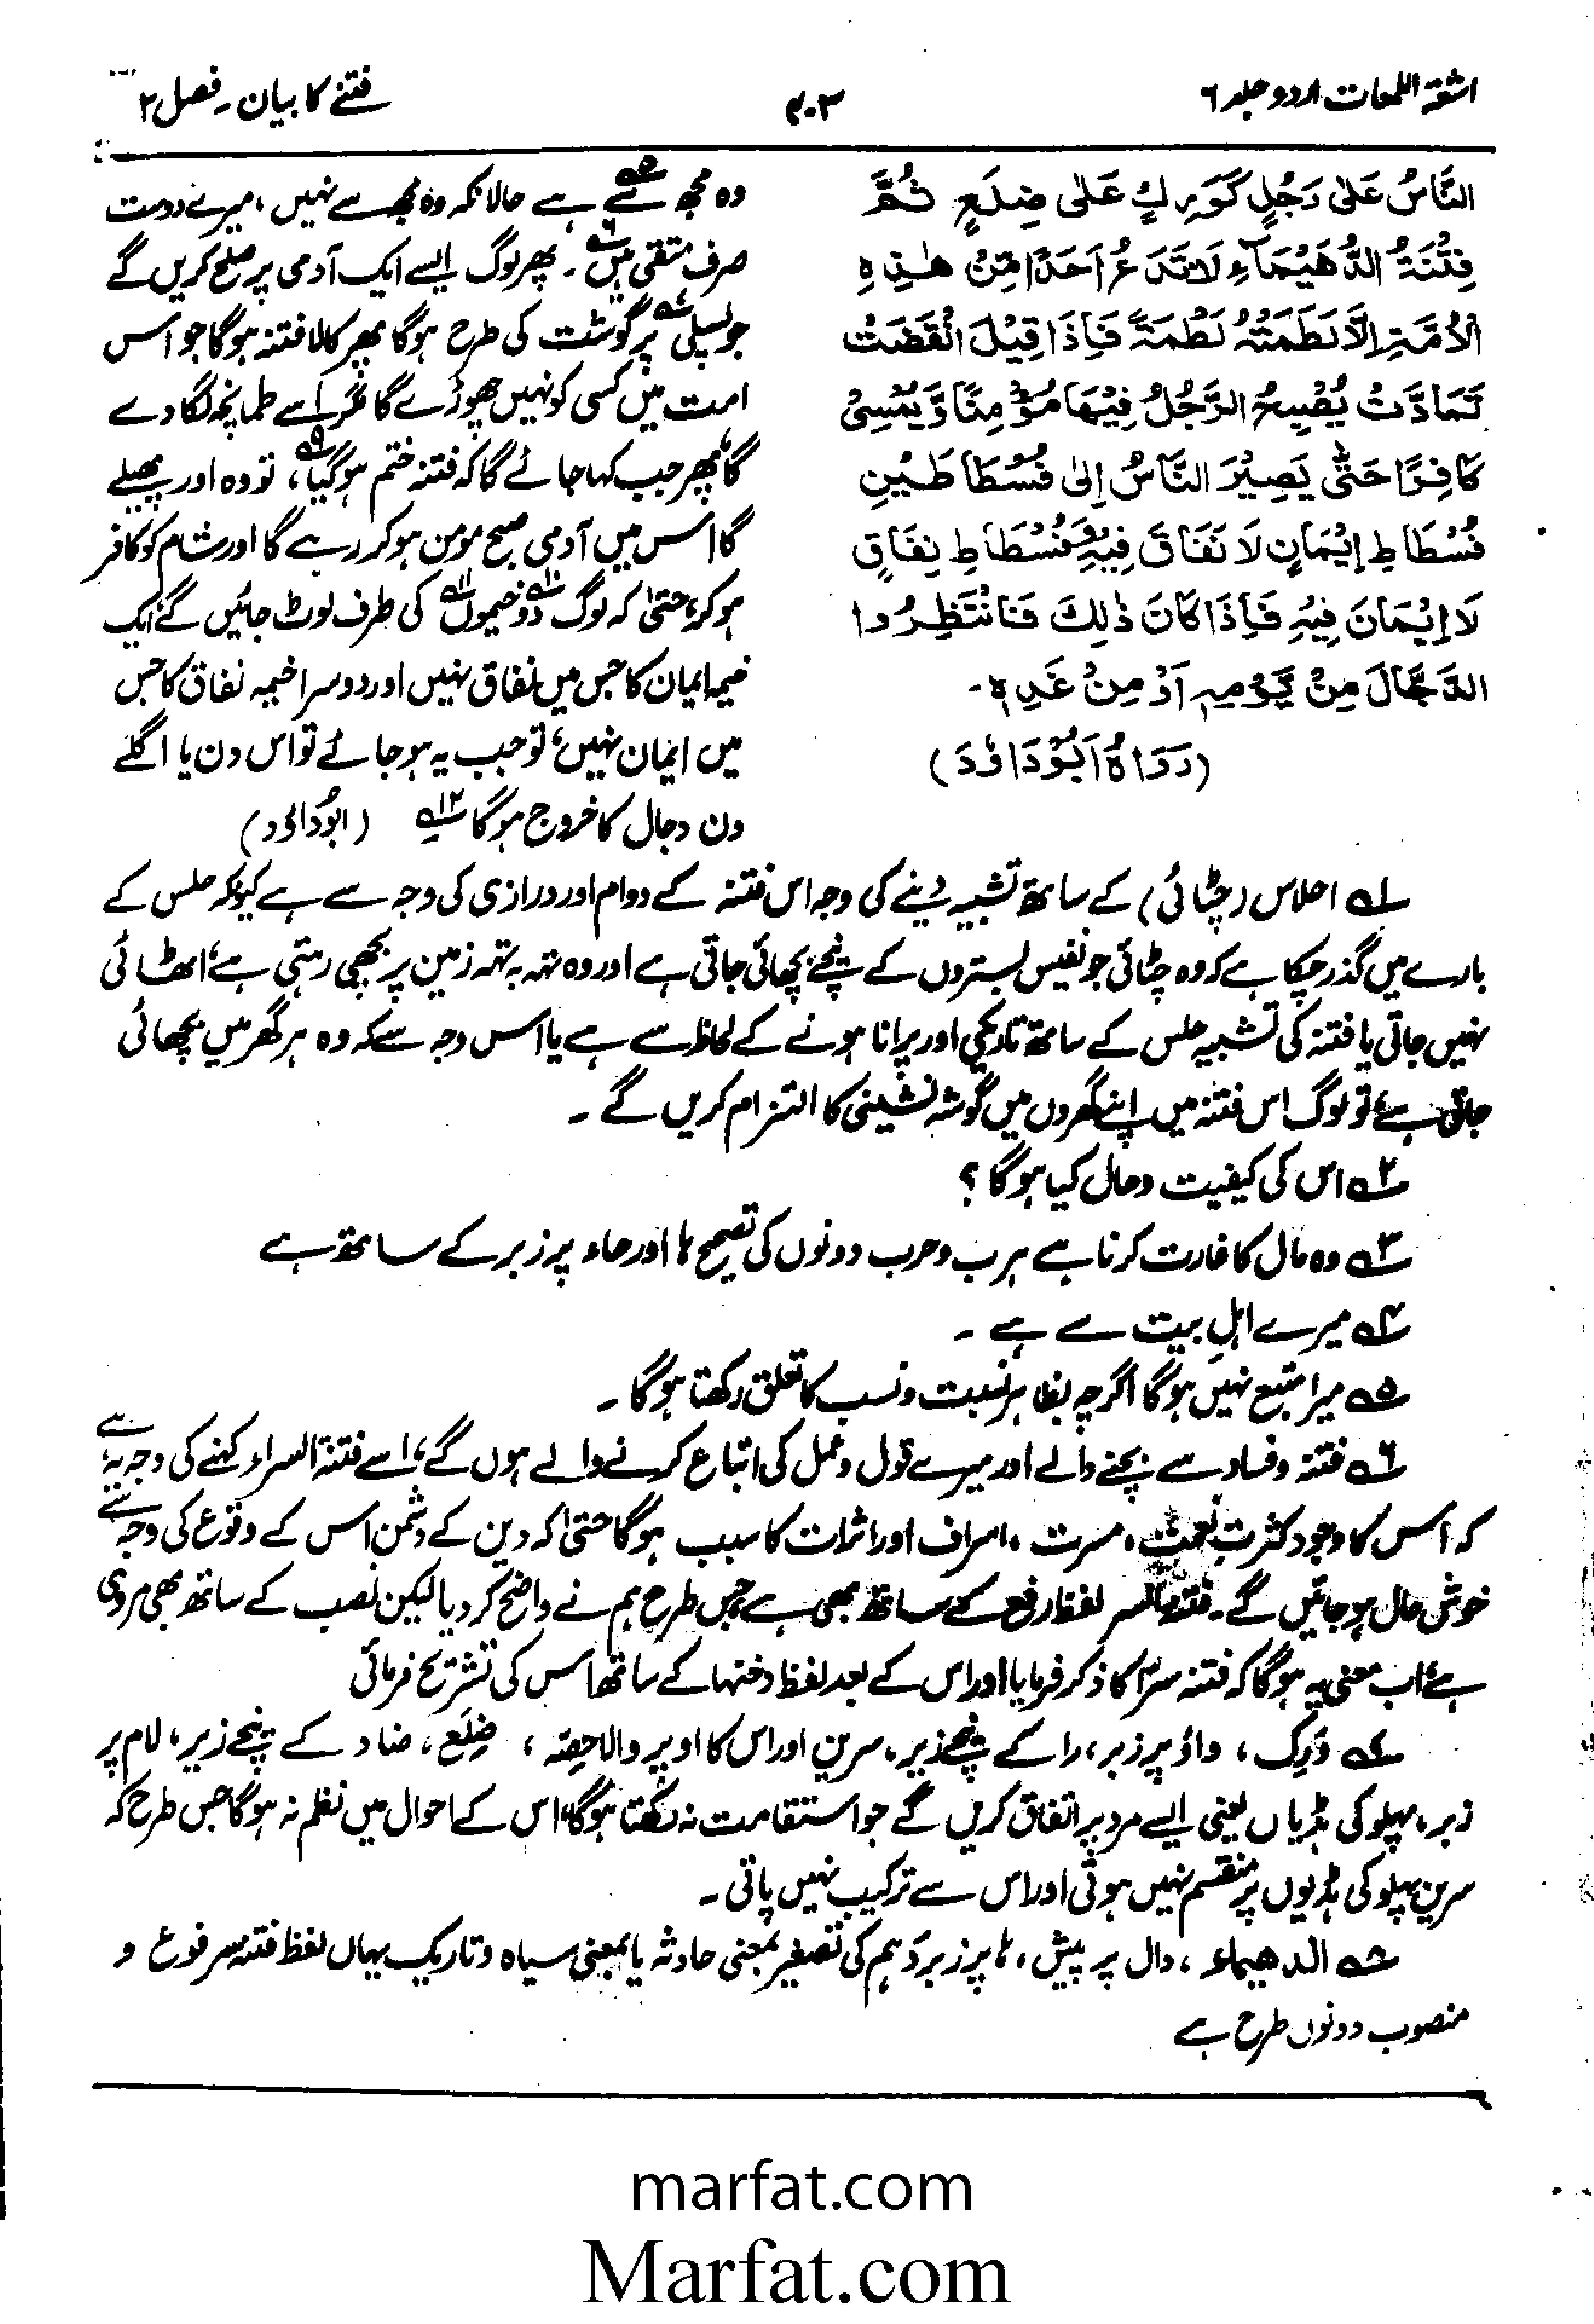 اشعۃ اللمعات اردو جلد ۶
۴۰۳
فتنے کا بیان۔ فصل ۲
النَّاسُ عَلٰى رَجُلٍ كَوَرِكٍ عَلٰى ضِلَعٍ ثُمَّ
فِتْنَةُ الدُّهَيْمَآءِ لَا تَدَعُ اَحَدًا مِّنْ هٰذِهِ
الْاُمَّةِ اِلَّا لَطَمَتْهُ لَطْمَةً فَاِذَا قِيْلَ انْقَضَتْ
تَمَادَّتْ يُصْبِحُ الرَّجُلُ فِيْهَا مُؤْمِنًا وَّيُمْسِىْ
كَافِرًا حَتّٰى يَصِيْرَ النَّاسُ اِلٰى فُسْطَاطَيْنِ
فُسْطَاطِ اِيْمَانٍ لَا نِفَاقَ فِيْهِ وَفُسْطَاطِ نِفَاقٍ
لَا اِيْمَانَ فِيْهِ فَاِذَا كَانَ ذٰلِكَ فَانْتَظِرُوا
الدَّجَّالَ مِنْ يَّوْمِهٖ اَوْ مِنْ غَدِهٖ۔
(رَوَاهُ اَبُوْدَاوٗدَ)
وہ مجھ سے ۵ ہے حالانکہ وہ مجھ سے نہیں، میرے دوست
صرف متقی ہیں ۶۔ پھر لوگ ایسے ایک آدمی پر صلح کریں گے
جو پسلی ۷ پر گوشت کی طرح ہوگا پھر کالا فتنہ ہوگا جو اس
امت میں کسی کو نہیں چھوڑے گا مگر اسے طمانچہ لگا دے
گا، پھر جب کہا جائے گا کہ فتنہ ختم ہو گیا ۹، تو وہ اور پھیلے
گا اس میں آدمی صبح مومن ہو کر رہے گا اور شام کو کافر
ہو کر، حتیٰ کہ لوگ دو ۱۰ خیموں ۱۱ کی طرف لوٹ جائیں گے ایک
خیمہ ایمان کا جس میں نفاق نہیں اور دوسرا خیمہ نفاق کا جس
میں ایمان نہیں، تو جب یہ ہو جائے تو اس دن یا اگلے
دن دجال کا خروج ہوگا ۱۲ (ابوداؤد)
۱ احلاس (چٹائی) کے ساتھ تشبیہ دینے کی وجہ اس فتنہ کے دوام اور درازی کی وجہ سے ہے کیونکہ حلس کے
بارے میں گذر چکا ہے کہ وہ چٹائی جو نفیس بستروں کے نیچے بچھائی جاتی ہے اور وہ تہہ بہ تہہ زمین پر بچھی رہتی ہے، اٹھائی
نہیں جاتی یا فتنہ کی تشبیہ حلس کے ساتھ تاریکی اور پرانا ہونے کے لحاظ سے ہے یا اس وجہ سے کہ وہ ہر گھر میں بچھائی
جاتی ہے، تو لوگ اس فتنہ میں اپنے گھروں میں گوشہ نشینی کا التزام کریں گے۔
۲ اس کی کیفیت و حال کیا ہوگا؟
۳ وہ مال کا غارت کرنا ہے ہرب و حرب دونوں کی تصحیح ہا اور حاء پر زبر کے ساتھ ہے
۴ میرے اہلِ بیت سے ہے۔
۵ میرا متبع نہیں ہوگا اگرچہ بظاہر نسبت و نسب کا تعلق رکھتا ہوگا۔
۶ فتنہ و فساد سے بچنے والے اور میرے قول و عمل کی اتباع کرنے والے ہوں گے، اسے فتنۃ السراء کہنے کی وجہ یہ ہے
کہ اس کا وجود کثرتِ نعمت، مسرت، اسراف اور اثرات کا سبب ہوگا حتیٰ کہ دین کے دشمن اس کے وقوع کی وجہ سے
خوش حال ہو جائیں گے۔ لفظ رفع کے ساتھ بھی ہے جس طرح ہم نے واضح کر دیا لیکن نصب کے ساتھ بھی مروی
ہے، اب معنی یہ ہوگا کہ فتنہ سرّا کا ذکر فرمایا اور اس کے بعد لفظ دخنہا کے ساتھ اس کی تشریح فرمائی
۷ وَرِک، واؤ پر زبر، را کے نیچے زیر، سرین اور اس کا اوپر والا حصّہ، ضِلَع، ضاد کے نیچے زیر، لام پر
زبر، پہلو کی ہڈیاں یعنی ایسے مرد پر اتفاق کریں گے جو استقامت نہ رکھتا ہوگا، اس کے احوال میں نظم نہ ہوگا جس طرح کہ
سرین پہلو کی ہڈیوں پر منقسم نہیں ہوتی اور اس سے ترکیب نہیں پاتی۔
۸ الدھیماء، دال پر پیش، ہا پر زبر دَہم کی تصغیر بمعنی حادثہ یا بمعنی سیاہ و تاریک یہاں لفظ فتنہ مرفوع و
منصوب دونوں طرح ہے
marfat.com
Marfat.com